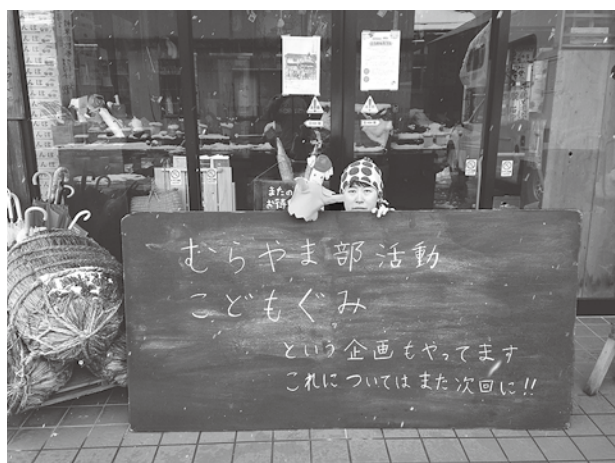 またの
お
むらやま部活動
こどもぐみ
という企画もやってます
これについてはまた次回に!!